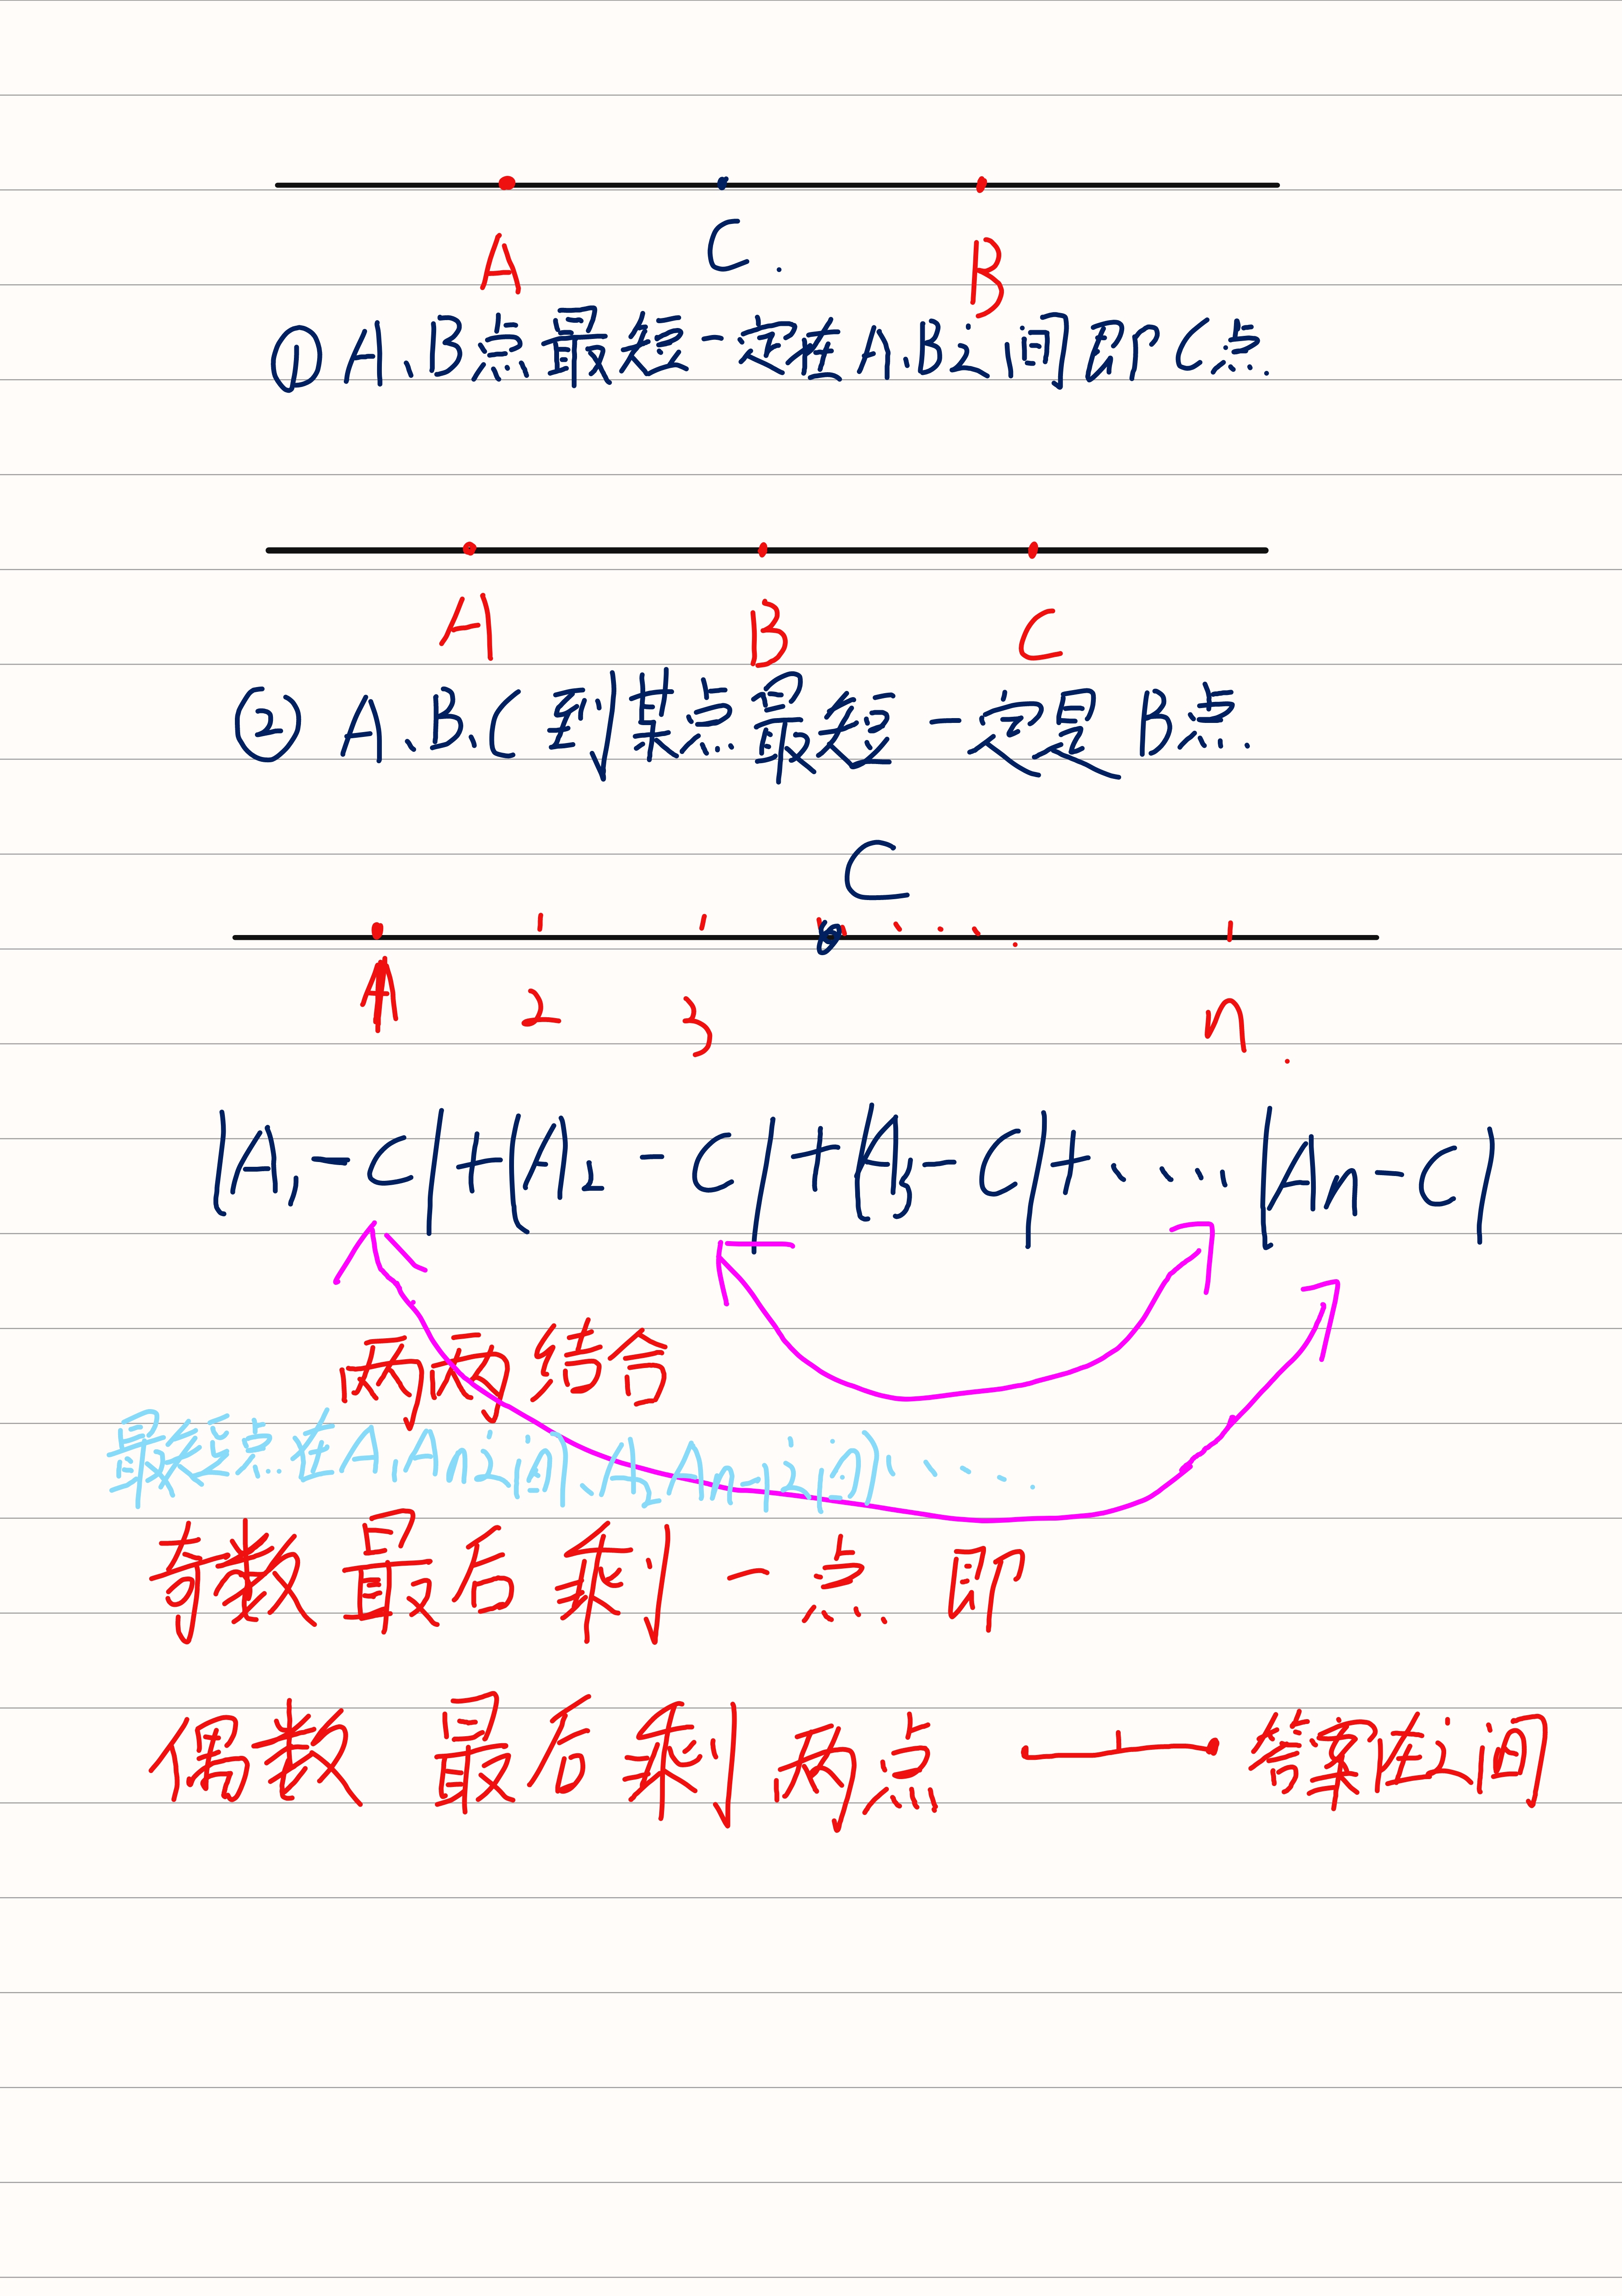 A C. B
① A、B点最短一定在A、B之间即C点.
A B C
② A、B、C到某点最短一定是B点.
C
A 2 3 n.
|A₁-C|+|A₂-C|+|A₃-C|+……|An-C|
两两结合
最短点在A₁An之间、A₂An-1之间、……
奇数最后剩一点即
偶数 最后剩两点 答案在之间